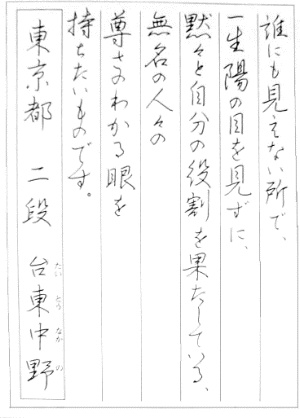 誰にも見えない所で、
一生陽の目を見ずに、
黙々と自分の役割を果たしている、
無名の人々の
尊さのわかる眼を
持ちたいものです。
東京都 二段 台東中野
たい とう なか の